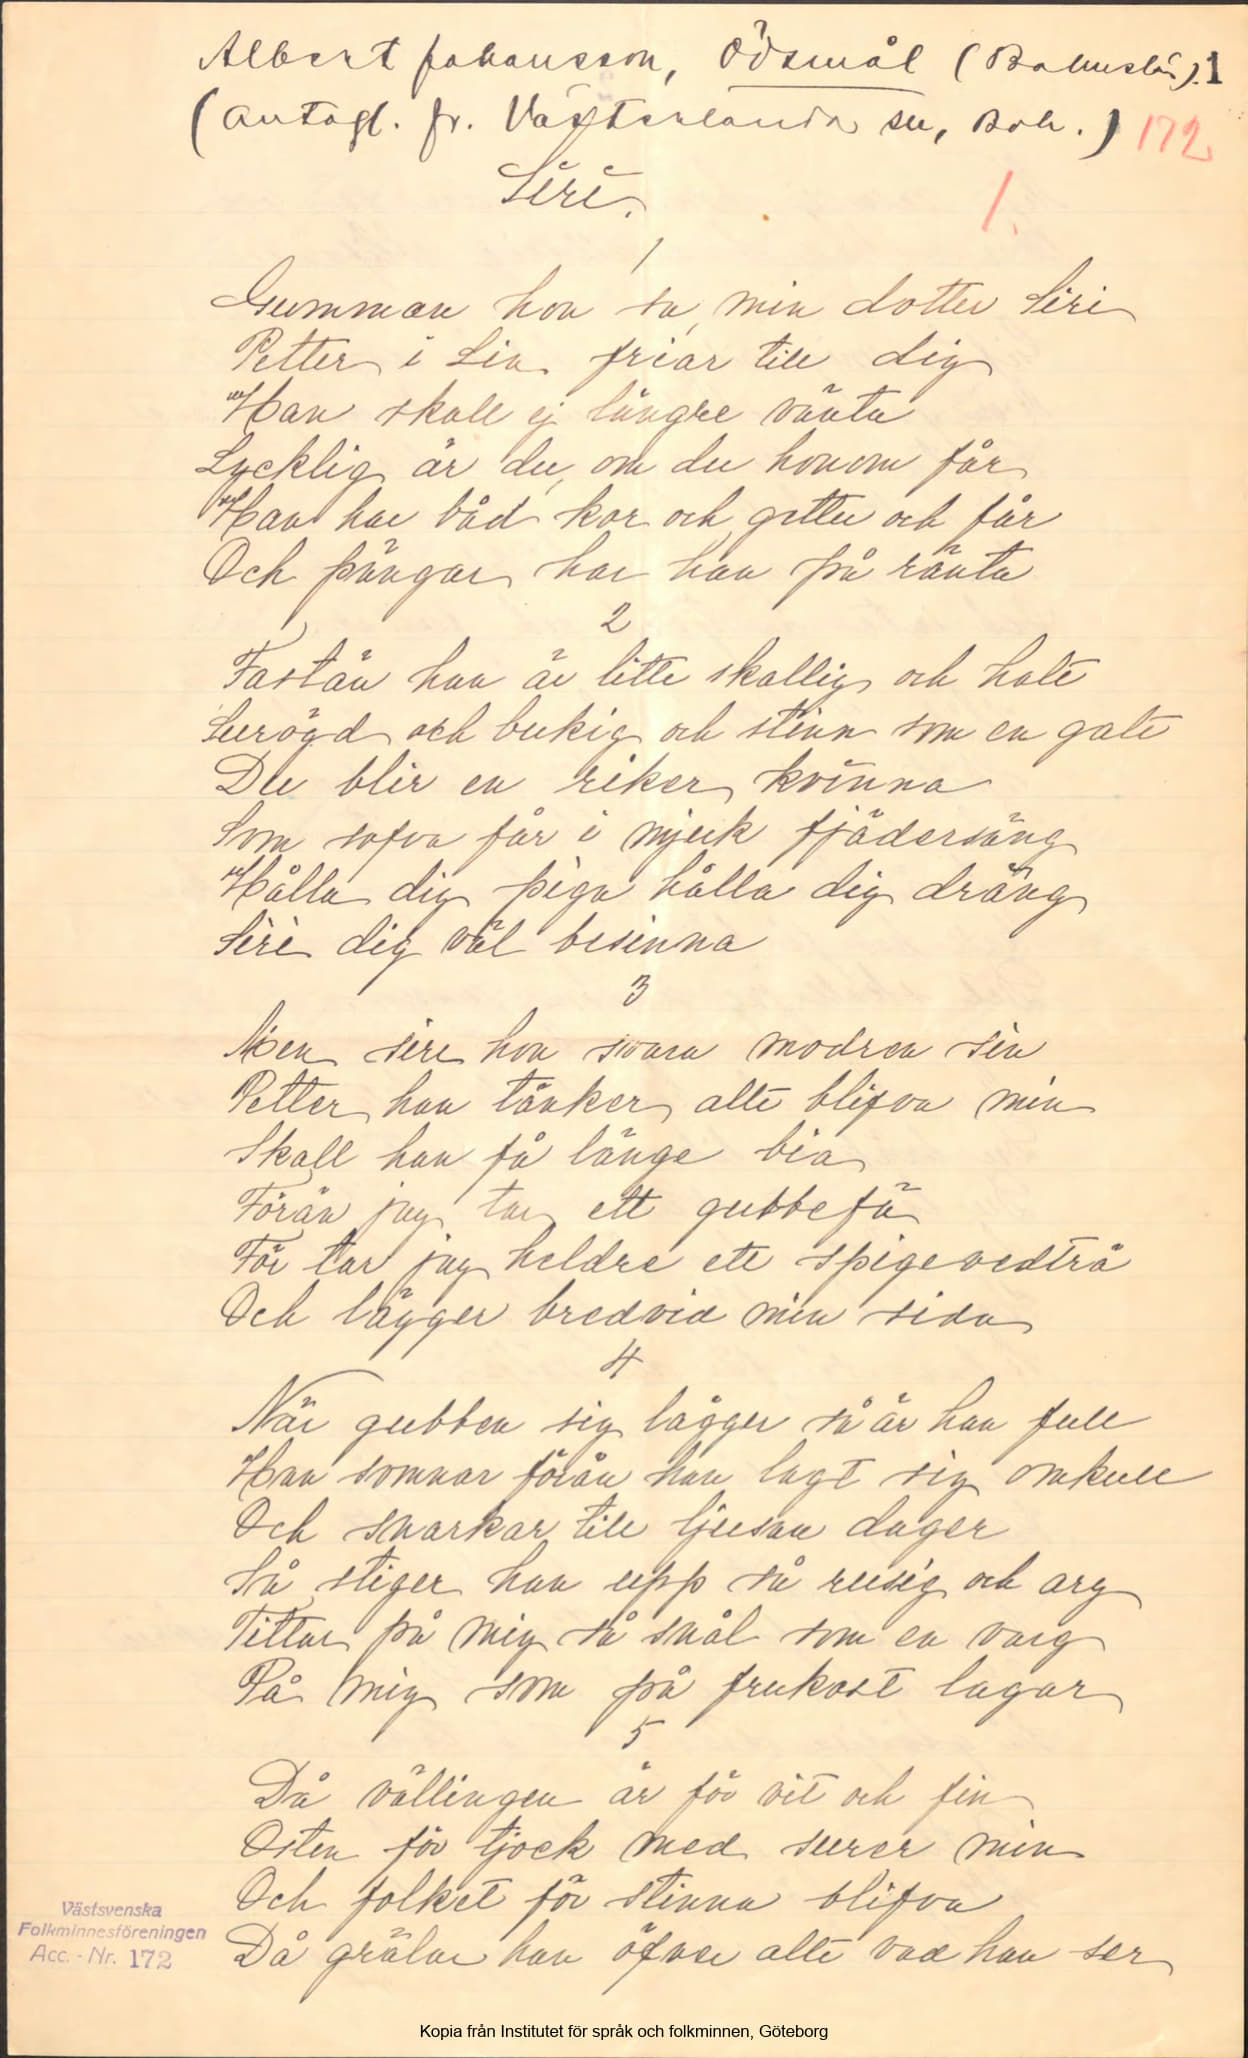 Albert Johansson, Ödsmål (Bohuslän). 1
(Antagl. fr. Västerlanda sn, Boh.) 172
Siri. 1.
1
Gumman hon sa, min dotter Siri
Petter i Lia friar till dig
Han skall ej längre vänta
Lycklig är du, om du honom får
Han har båd kor och getter och får
Och pängar har han på ränta
2
Fastän han är litte skallig och halt
Surögd och bukig och stinn som en galt
Du blir en riker kvinna
Som sofva får i mjuk fjädersäng
Hålla dig piga hålla dig dräng
Siri dig väl besinna
3
Men siri hon svara modren sin
Petter han tänker allt blifva min
Skall han få länge bia
Förän jag tar ett gubbefä
För tar jag heldre ett spigevedträ
Och lägger bredvid min sida
4
När gubben sig lägger så är han full
Han somnar förän han lagt sig omkull
Och snarkar till ljusan dager
Så stiger han upp så rusig och arg
Tittar på mig så snål som en varg
På mig som på frukost lagar
5
Då vällingen är för vit och fin
Osten för tjock med surer min
Och folket för stinna blifva
Då grälar han öfver allt vad han ser
Västsvenska
Folkminnesföreningen
Acc.-Nr. 172
Kopia från Institutet för språk och folkminnen, Göteborg